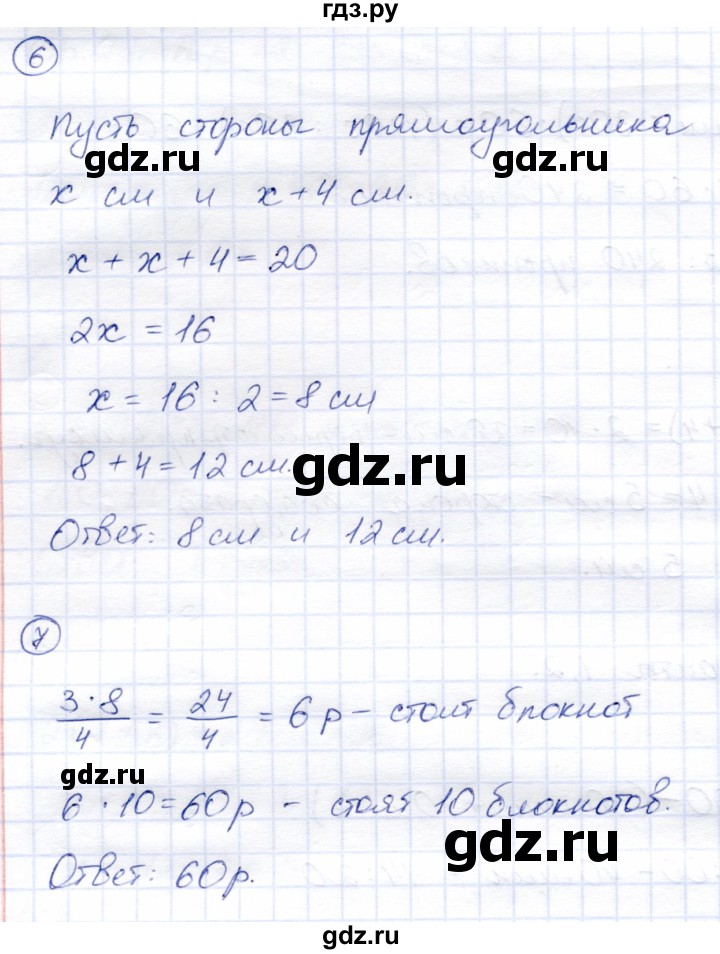 гдз.ру
6
Пусть стороны прямоугольника
gdz.ru gdz.ru
x см и x+4 см.
x + x + 4 = 20
2x = 16
x = 16 : 2 = 8 см
8 + 4 = 12 см.
gdz.ru
Ответ: 8 см и 12 см.
7
3·8/4 = 24/4 = 6 р – стоит блокнот
gdz.ru
6 · 10 = 60 р – стоят 10 блокнотов.
gdz.ru
Ответ: 60 р.
gdz.ru